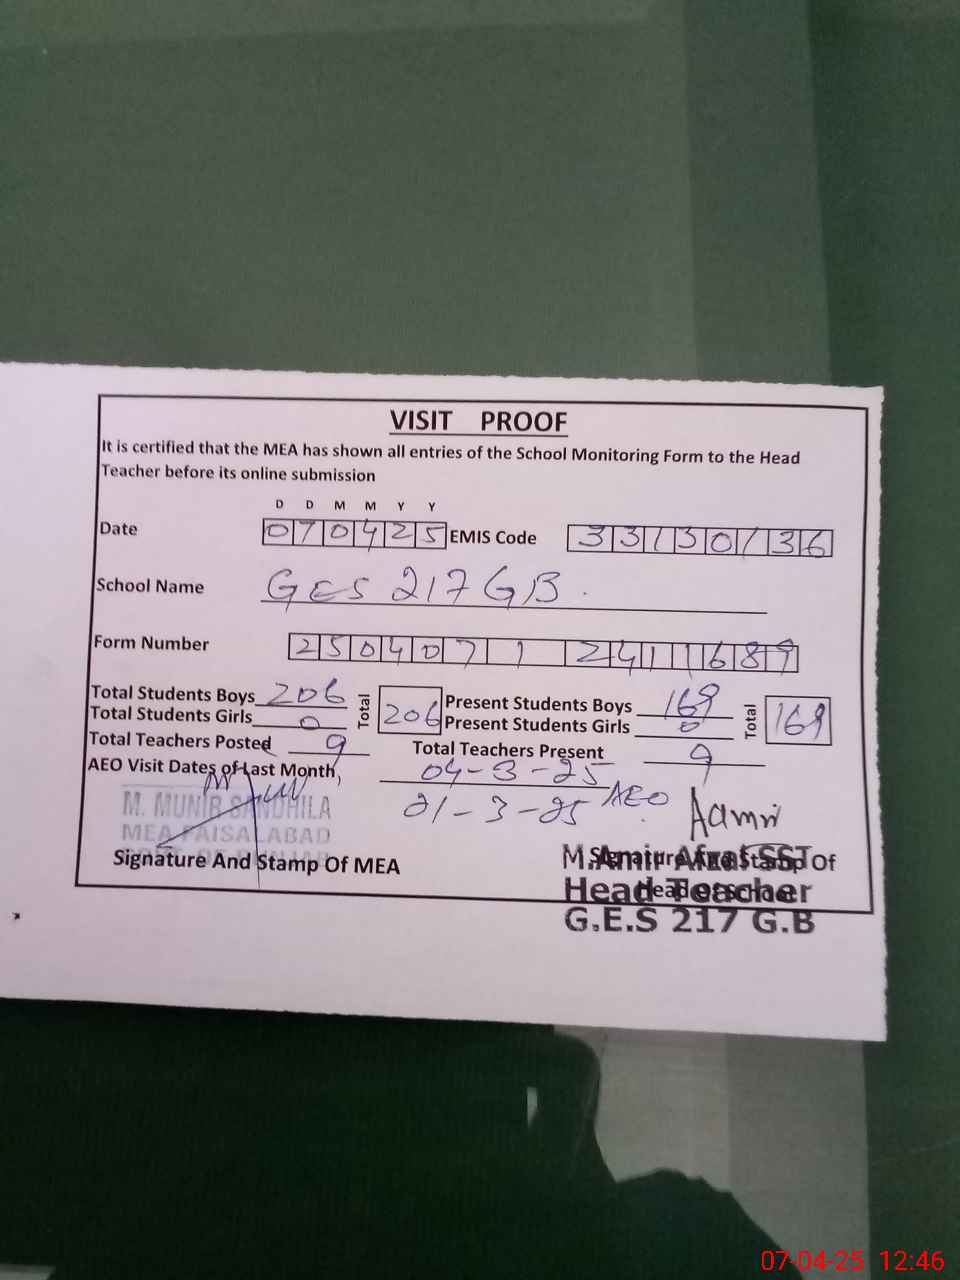 VISIT PROOF
It is certified that the MEA has shown all entries of the School Monitoring Form to the Head
Teacher before its online submission
D D M M Y Y
Date 070425 EMIS Code 33130136
School Name GES 217 GB
Form Number 250407 1 2411689
Total Students Boys 206 Total 206 Present Students Boys 169 Total 169
Total Students Girls 0 Present Students Girls 0
Total Teachers Posted 9 Total Teachers Present 9
AEO Visit Dates of Last Month, 04-3-25
21-3-25 AEO Aamir
M. MUNIR SANDHILA
MEA FAISALABAD
Signature And Stamp Of MEA
M.Amir Afzal SST
Signature And Stamp Of
Head Teacher
Head of school
G.E.S 217 G.B
07-04-25 12:46